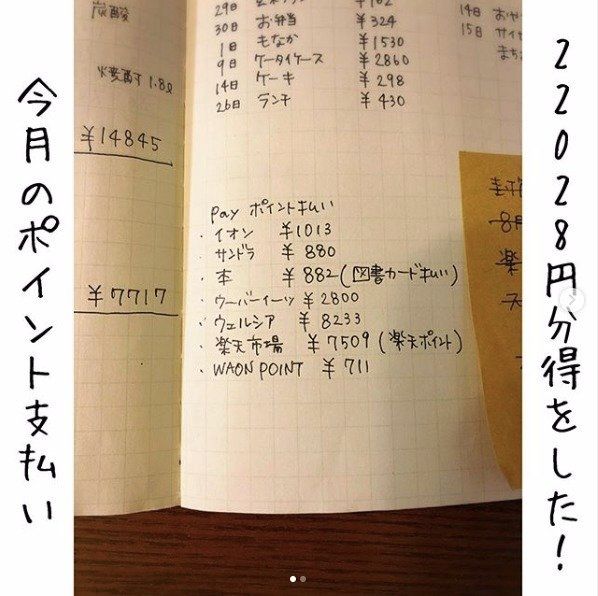 22028円分得をした!
今月のポイント支払い
炭酸
1.8ℓ
¥14845
¥7717
29日
30日 お弁当 ¥324
1日 もなか ¥1530
9日 ケータイケース ¥2860
14日 ケーキ ¥298
26日 ランチ ¥430
14日 おや
15日 サイゼ
まちが
pay ポイント払い
・イオン ¥1013
・サンドラ ¥880
・本 ¥882(図書カード払い)
・ウーバーイーツ ¥2800
・ウェルシア ¥8233
・楽天市場 ¥7509(楽天ポイント)
・WAON POINT ¥711
8月
楽
天